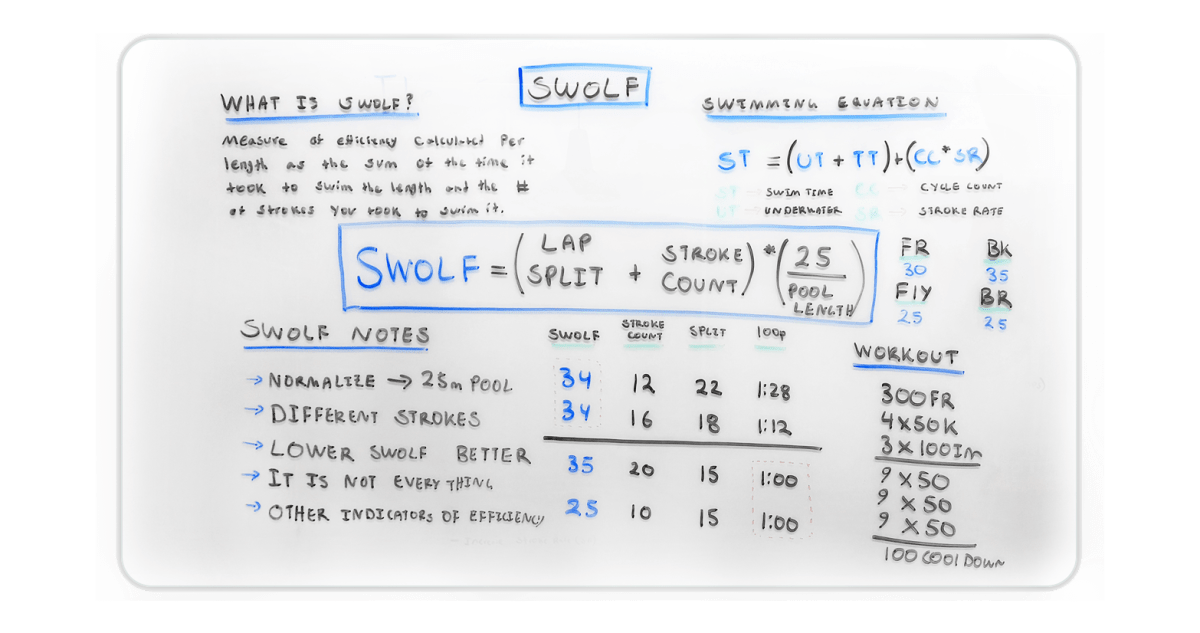 SWOLF
WHAT IS SWOLF?
Measure of efficiency calculated per
length as the sum of the time it
took to swim the length and the #
of strokes you took to swim it.
SWIMMING EQUATION
ST = (UT + TT) + (CC * SR)
ST → SWIM TIME CC → CYCLE COUNT
UT → UNDERWATER SR → STROKE RATE
SWOLF = (LAP SPLIT + STROKE COUNT) * (25 / POOL LENGTH)
FR BK
30 35
FLY BR
25 25
SWOLF NOTES
→ NORMALIZE → 25m POOL
→ DIFFERENT STROKES
→ LOWER SWOLF BETTER
→ IT IS NOT EVERYTHING
→ OTHER INDICATORS OF EFFICIENCY
SWOLF STROKE COUNT SPLIT 100p
34 12 22 1:28
34 16 18 1:12
35 20 15 1:00
25 10 15 1:00
WORKOUT
300FR
4x50K
3x100Im
9 x 50
9 x 50
9 x 50
100 COOL DOWN